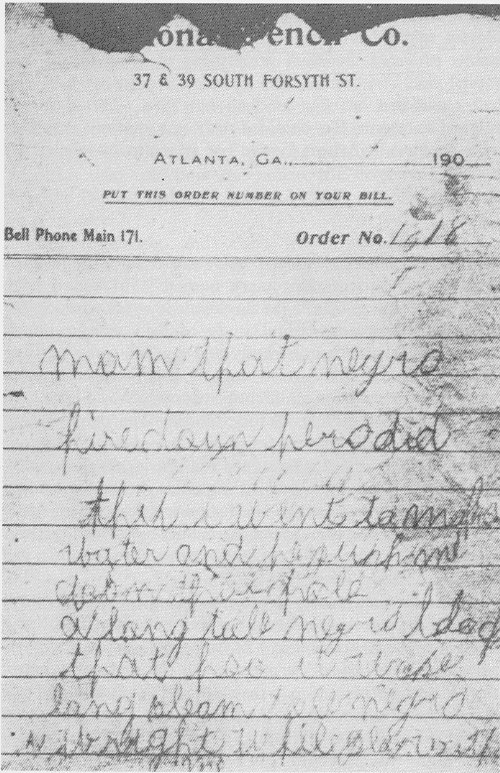 Co.
37 & 39 SOUTH FORSYTH ST.
ATLANTA, GA., 190
PUT THIS ORDER NUMBER ON YOUR BILL.
Bell Phone Main 171. Order No. 1018
mam that negro
hire doun here did
this i went to make
water and he push me
doun that hole
a long tall negro black
that hoo it wase
long sleam tall negro
i wright while play with
me